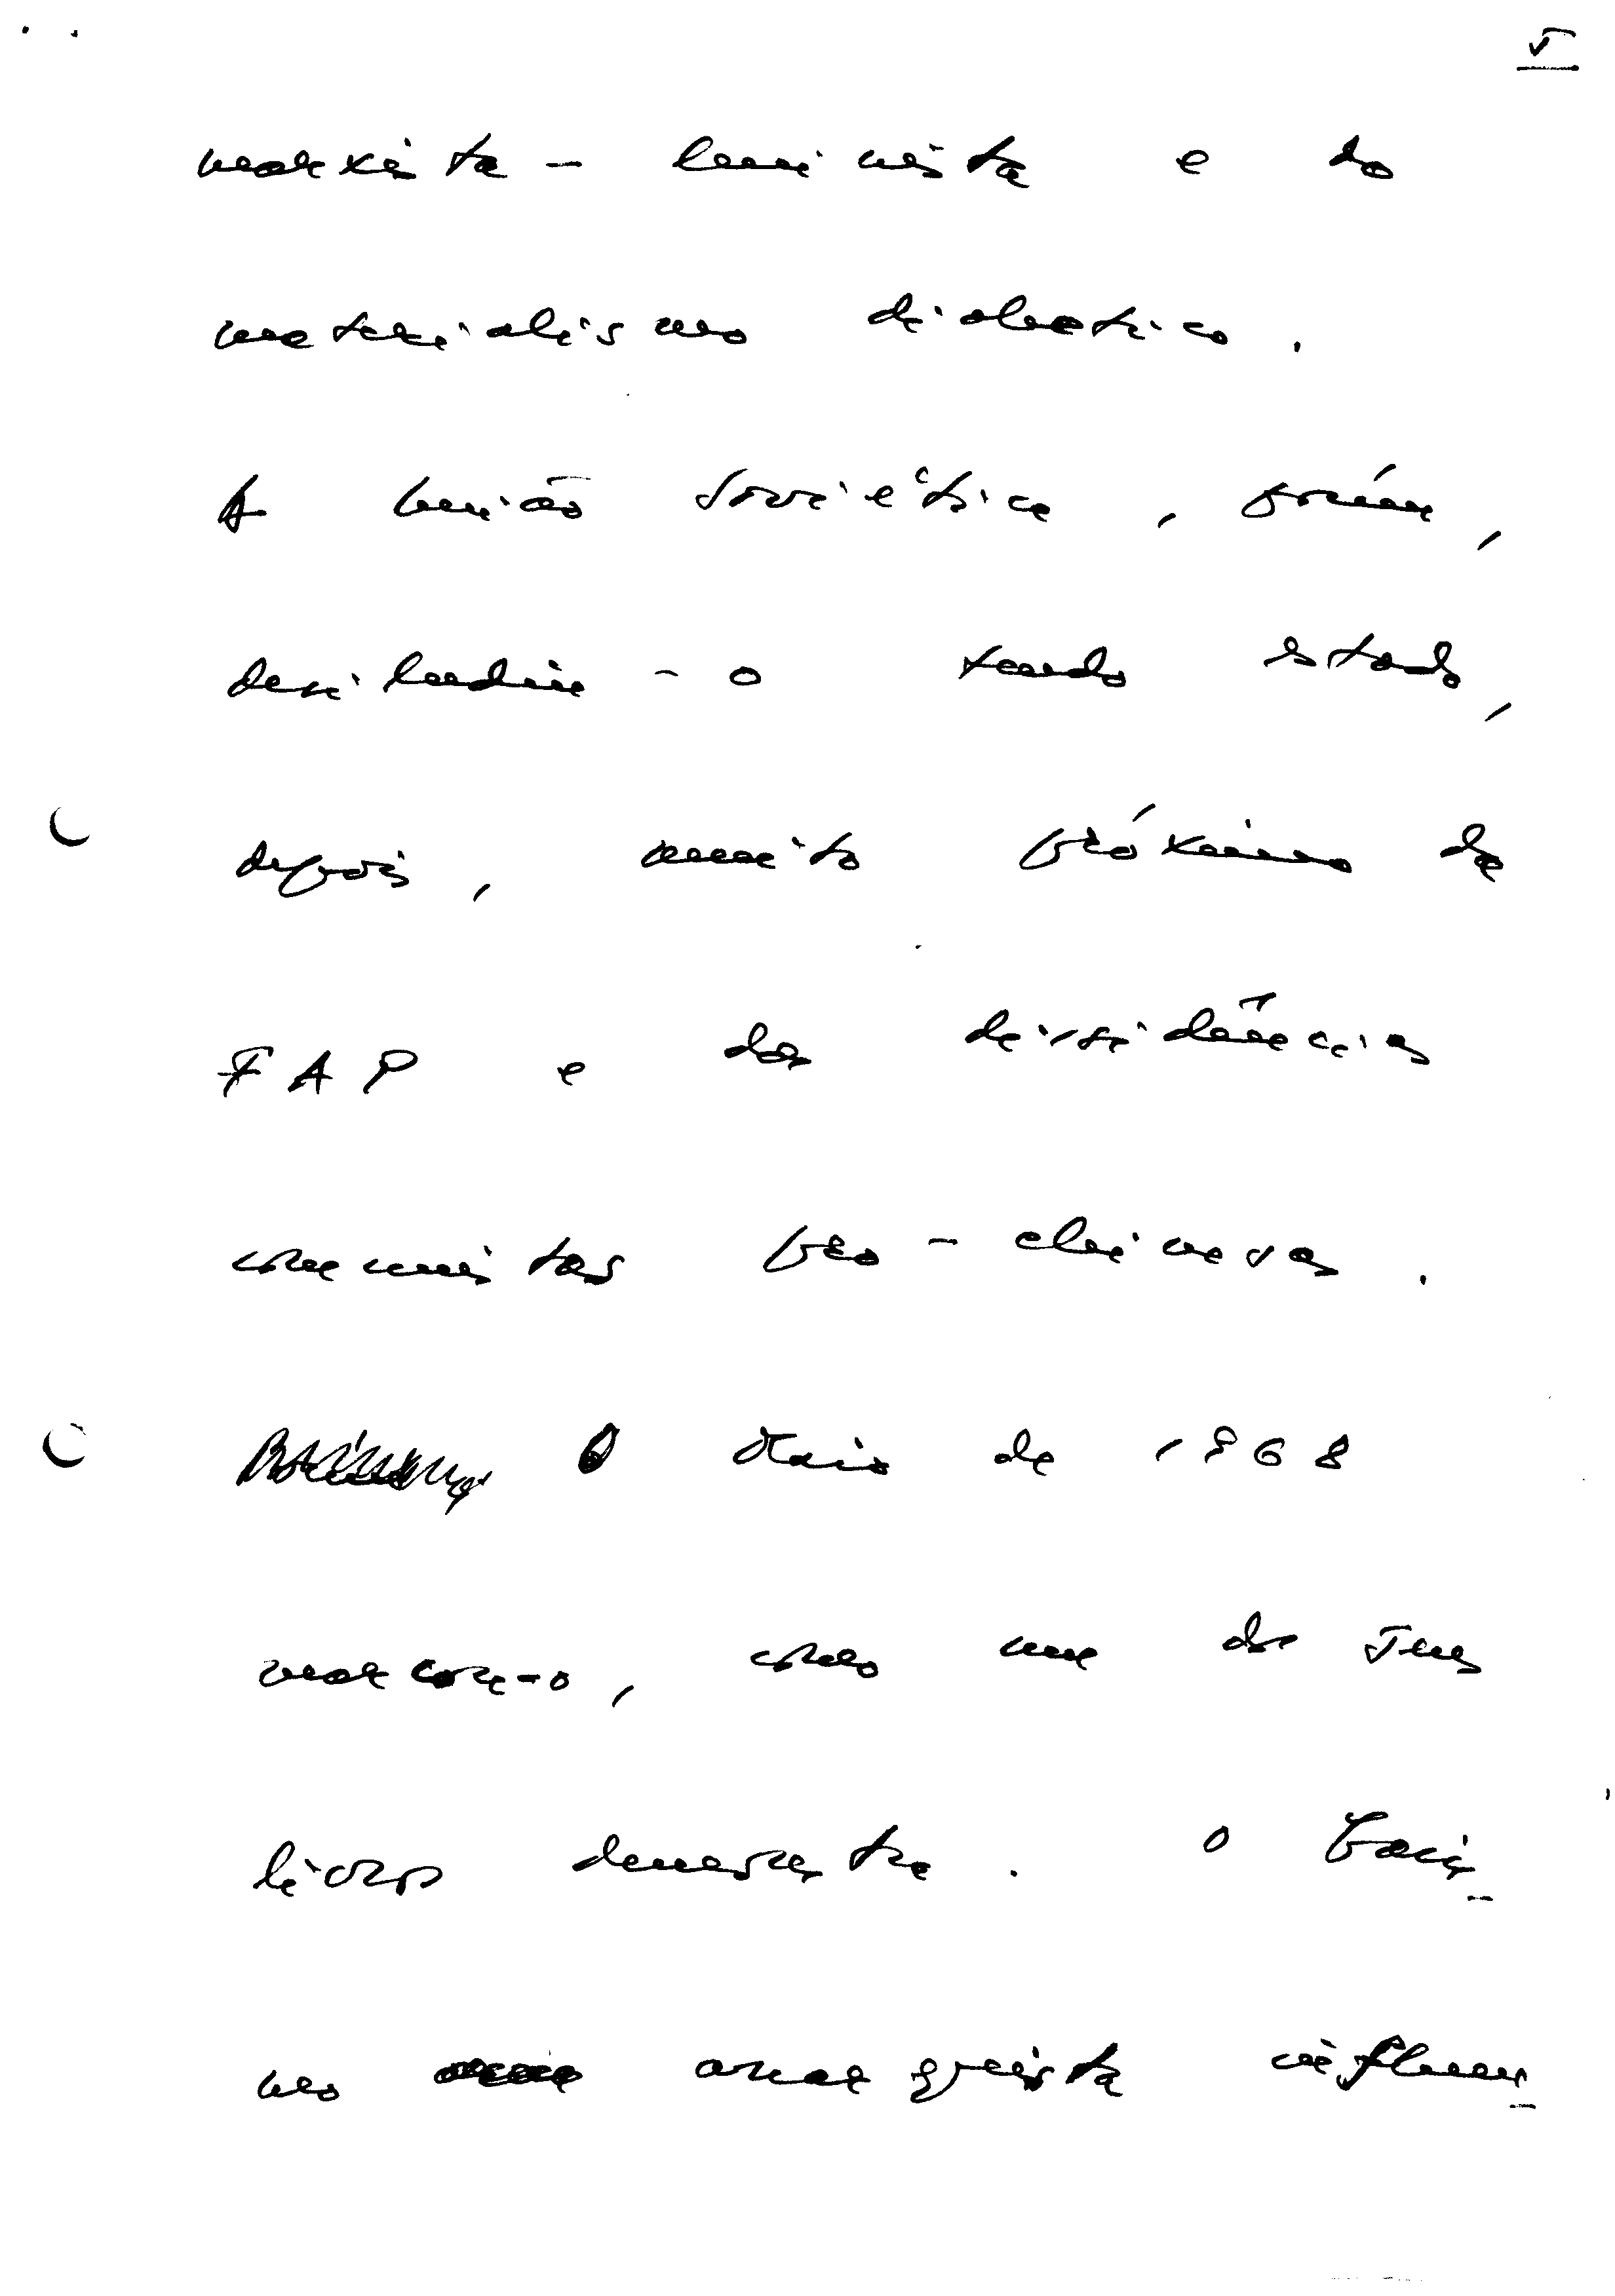 5
marxista-leninista e do
materialismo dialectico.
A União Soviética, porém,
desiludiu-o tendo estado,
depois, muito próximo da
FAP e das dissidências
comunistas pro-chinesas.
O Maio de 1968
marcou-o, como um dos seus
livros demonstra. O fascí_
no anarquista influen_